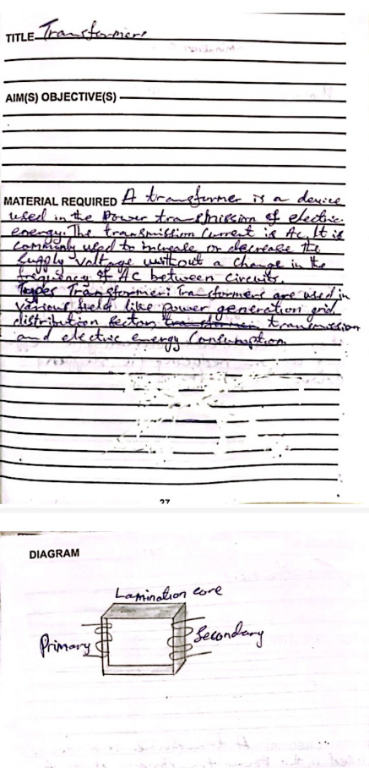 TITLE Transformers
AIM(S) OBJECTIVE(S)
MATERIAL REQUIRED A transformer is a device
used in the Power transmission of electric
energy. The transmission current is AC. It is
commonly used to increase or decrease the
Supply voltage without a change in the
frequency of AC between circuits.
Types Transformer: Transformers are used in
various field like power generation grid,
distribution sector, transmission
and electric energy Consumption
27
DIAGRAM
Lamination core
Primary
Secondary